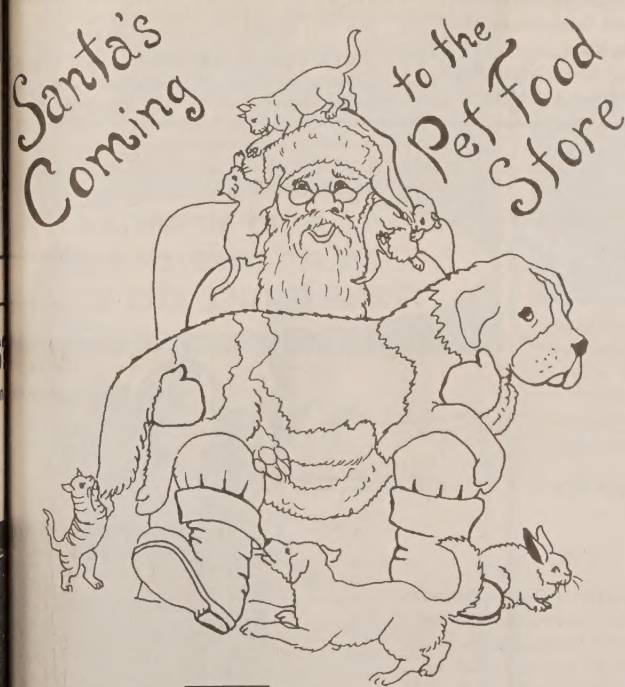 Santa's
Coming
to the
Pet Food
Store